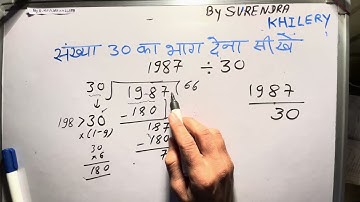 By SURENDRA
KHILERY
संख्या 30 का भाग देना सीखें
1987 ÷ 30
30 ) 1987 ( 66
198 > 30
x (1-9)
30
x 6
180
- 180
187
- 180
7
1987
30